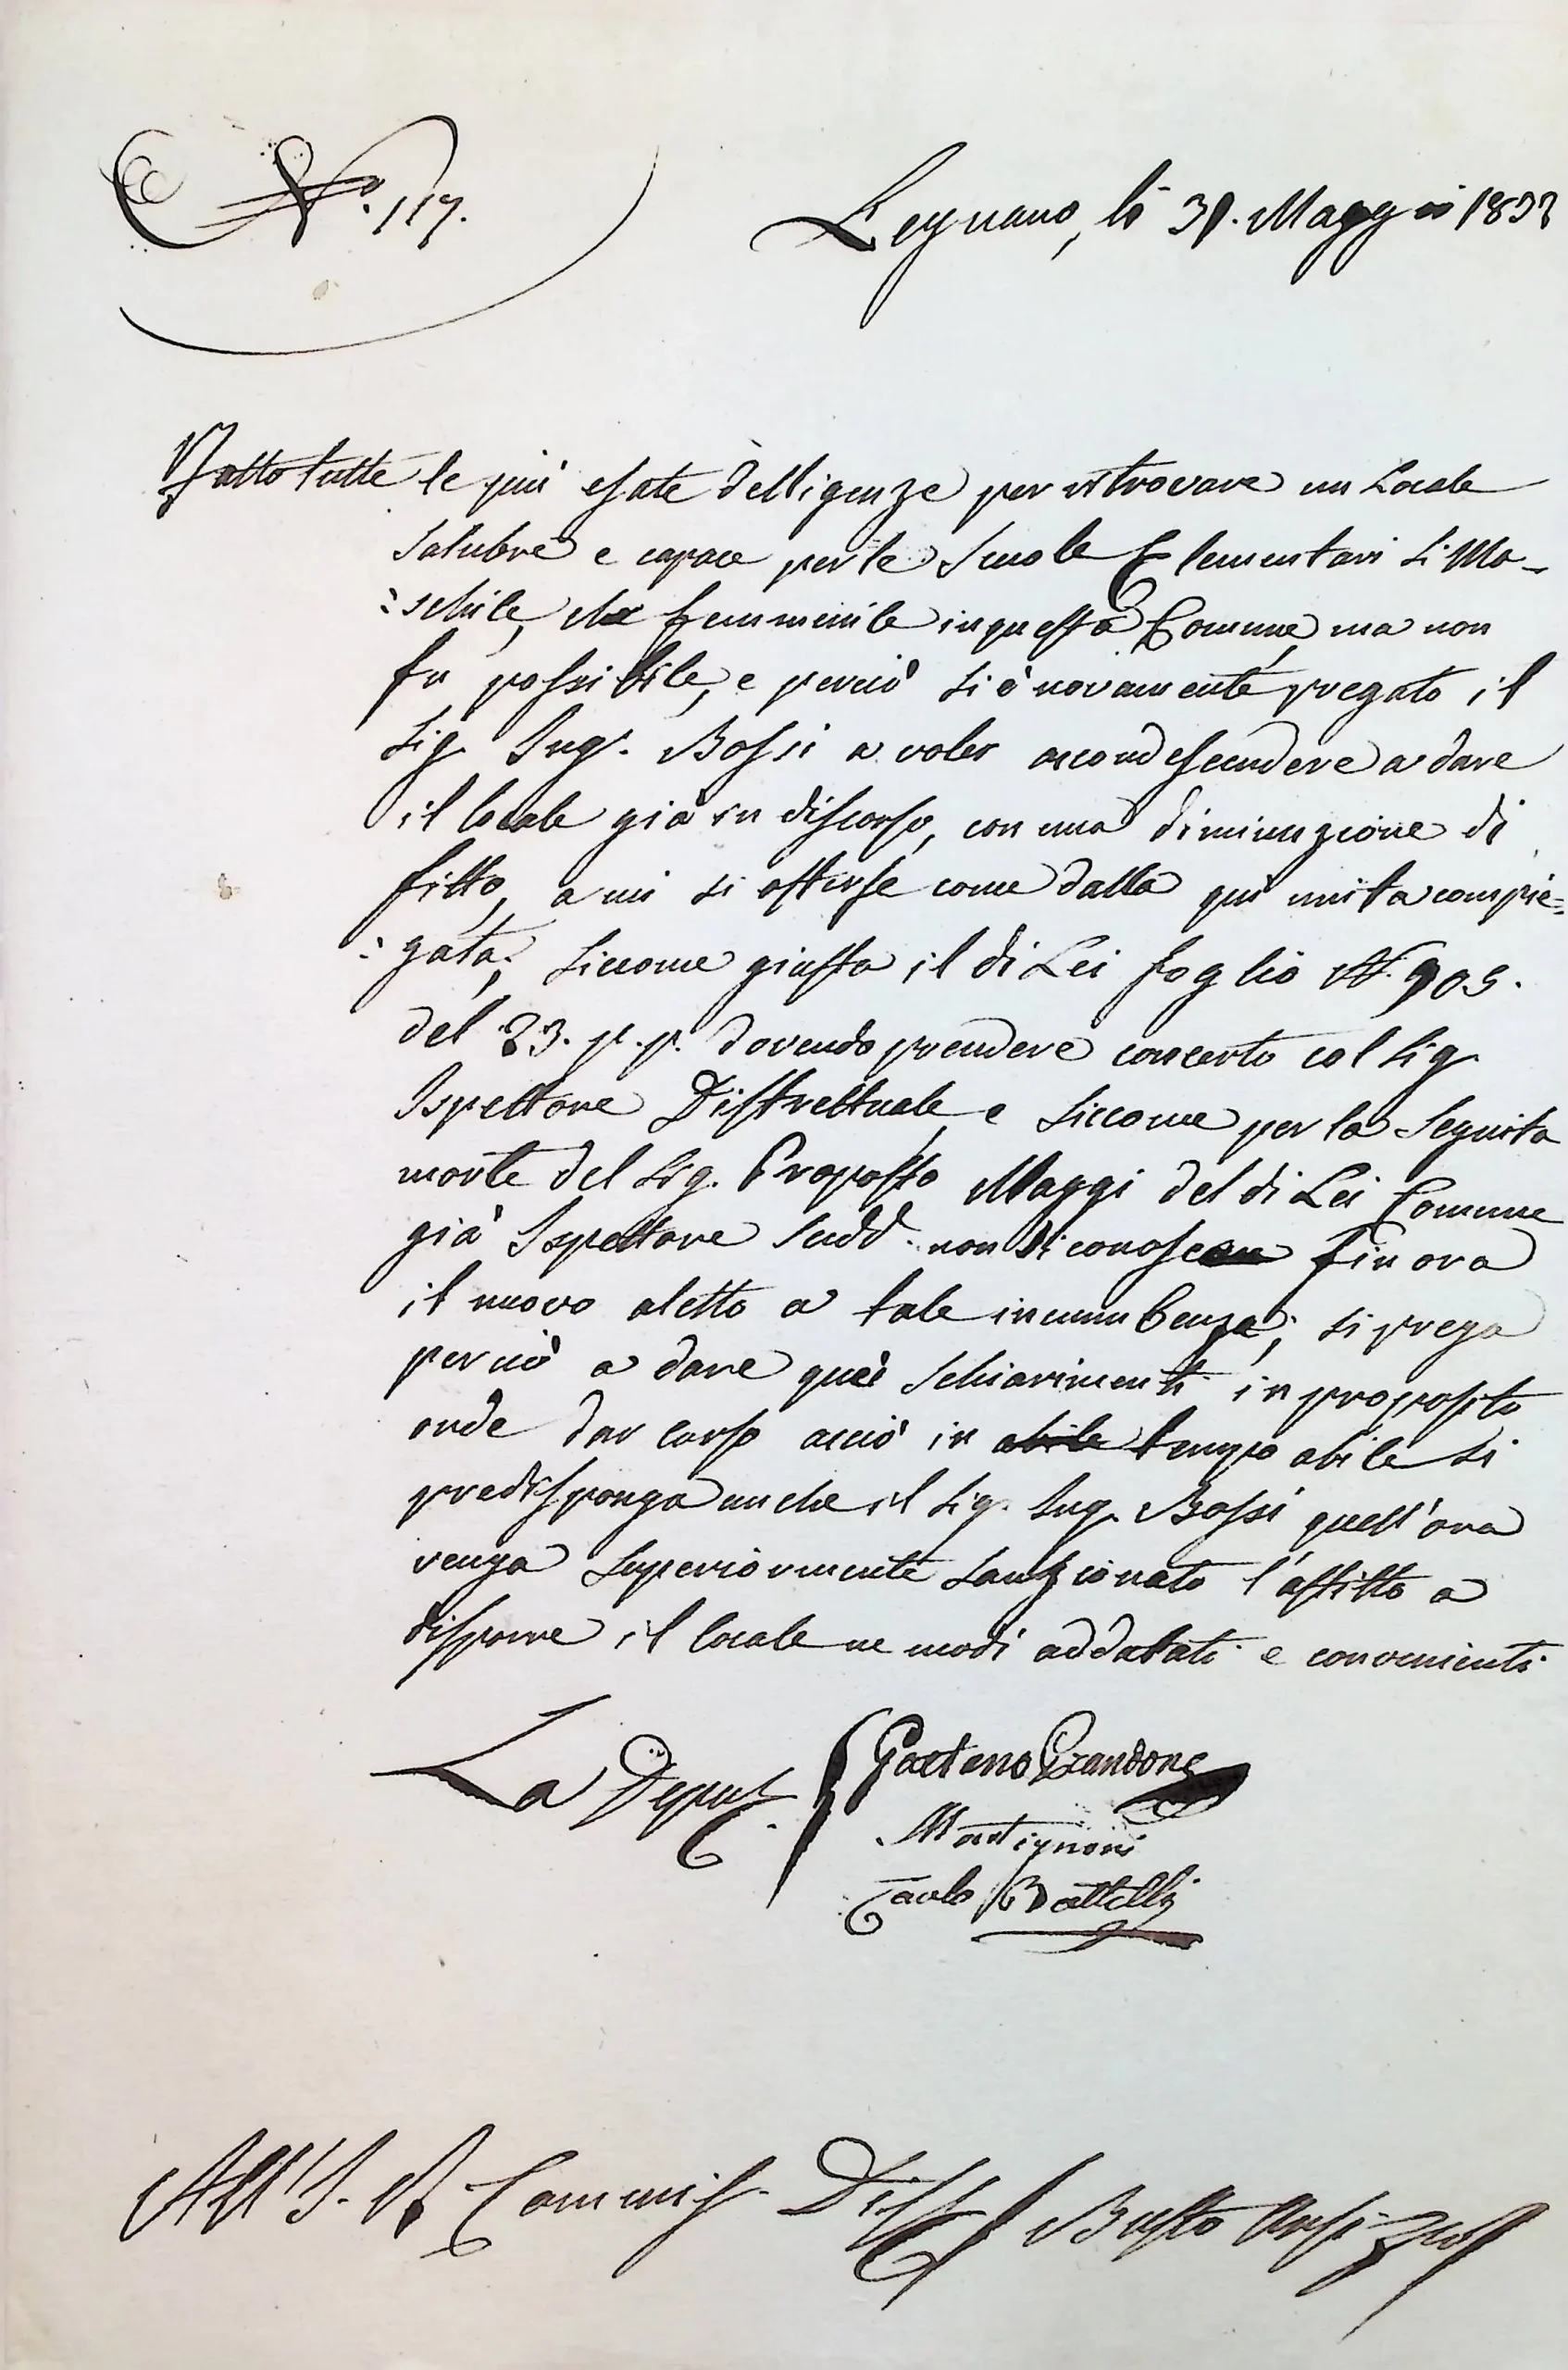 N°. 117.
Legnano, li 31. Maggio 1832
Fatto tutte le più esate delligenze per ritrovare un Locale
salubre e capace per le Scuole Elementari si Ma-
schile, che femminile in questa Comune, ma non
fu possibile, e perciò si è novamente pregato il
Sig. Ing. Bossi a voler accondescendere a dare
il locale già in discorso, con una diminuzione di
fitto, a cui si offerse come dalla qui unita compie=
gata; siccome giusta il di Lei foglio N. 905.
del 23. p.p. dovendo prendere concerto col Sig.
Ispettore Distrettuale, e siccome per la seguita
morte del Sig. Proposto Maggi del di Lei Comune
già Ispettore sudd. non si conosce fin ora
il nuovo eletto a tale incumbenza; si prega
perciò a dare quei schiarimenti in proposito
onde dar corso acciò in abile tempo abile si
predisponga anche il Sig. Ing. Bossi quell'ora
venga superiormente sanzionato l'affitto a
disporre il locale ne modi addatati e convenienti
La Deput.
Gaetano Prandone
Martignoni
Paolo Battelli
All'I. R. Commiss. Dist. Busto Arsizio